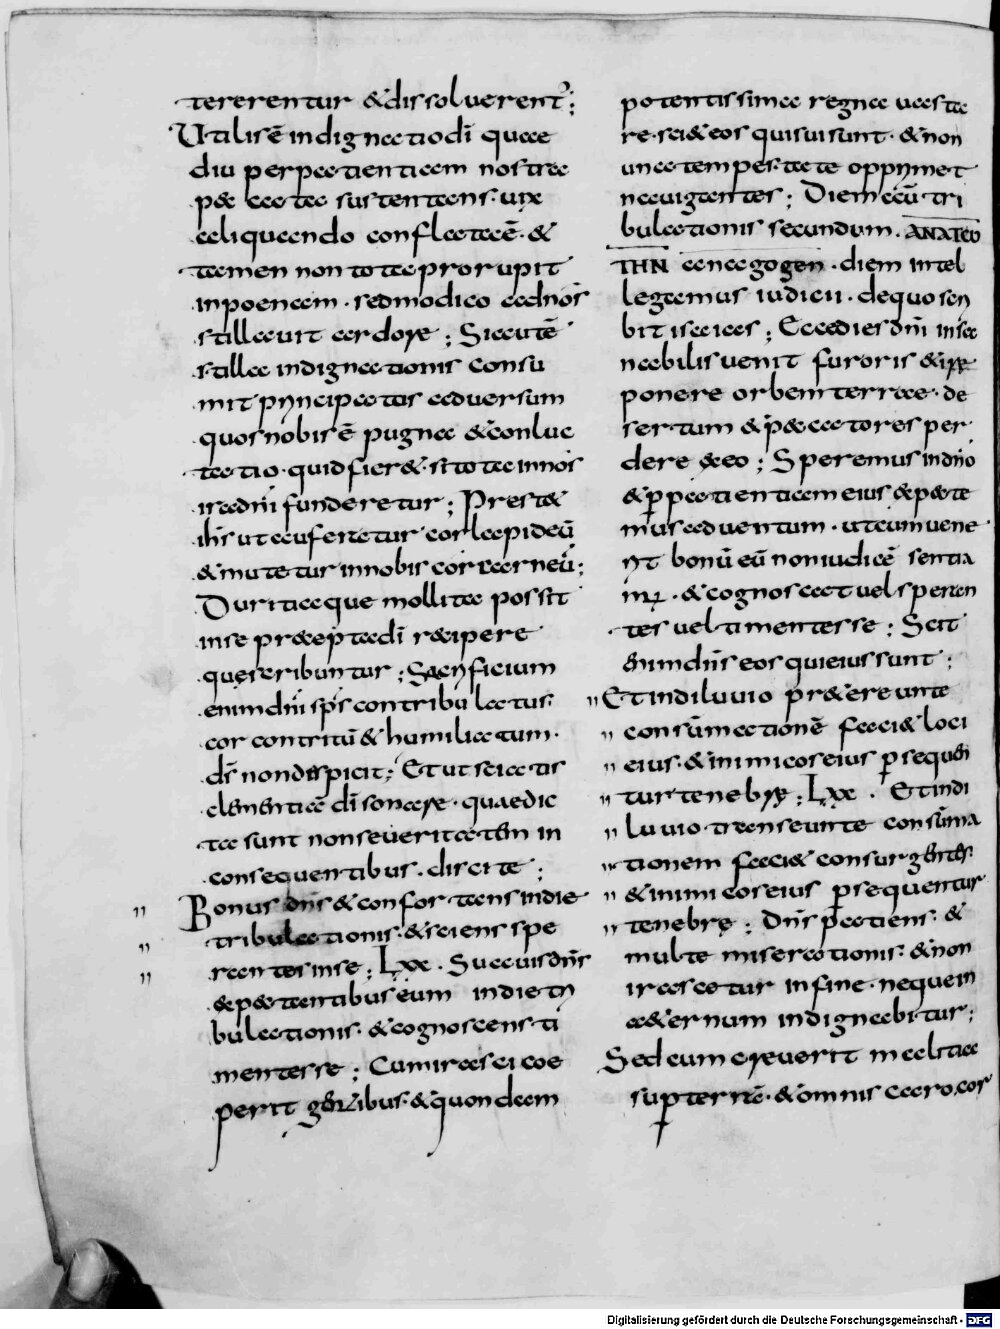 tererentur & dissoluerent᷑;
Utilis ē indignatio dī quae
diu per patientiam nostra
p&cata sustentans. uix
aliquando conflectatē. &
tamen non tota prorupit
in poenam. sed modico ad nōs
stillauit ardore; Si autē
stilla indignationis consu
mit principatus aduersum
quos nobis ē pugna & conluc
tatio. quid fier& si tota in nōs
ira dn̄i funderetur; Prest&
ih̄s ut auferatur cor lapideū
& mutetur in nobis cor carneū;
Duritiaque mollita possit
in se pr&epta dī r&ipere
quę scribuntur; Sacrificium
enim dn̄i sp̄s contribulatus.
cor contritū & humiliatum.
dr̄ non dispicit; Et ut sciatis
clementiā dī sonare. quae dic
ta sunt non seueritatem in
consequentibus. discite;
" Bonus dn̄s & confortans in die
" tribulationis. & sciens spe
" rantes in se; Lxx. Suauis dn̄s
exp&tantibus eum in die tri
bulationis. & cognoscens ti
mentes se; Cum irasci coe
perit gentibus. & quondam
potentissima regna uasta
re. sci& eos qui sui sunt. & non
una tempestate opprimet
nauigantes; Diem aūt tri
bulationis secundum. ANAΓω
THN anagogen. diem intel
legamus iudicii. de quo scri
bit isaias; Ecce dies dn̄i insa
nabilis uenit furoris & irę
ponere orbem terrae. de
sertum & p&catores per
dere ex eo; Speremus in dn̄o
& per patientiam eius exp&te
mus aduentum. ut cum uene
rit bonū eū non iudicē sentia
mus. & cognoscat uel speran
tes uel timentes se; Scit
enim dn̄s eos qui eius sunt;
" Et in diluuio pr&ereunte
" consūmationē faci& loci
" eius. & inimicos eius persequen
" tur tenebrę; Lxx. Et in di
" luuio transeunte consūma
" tionem faci& consurgentes.
" & inimicos eius persequentur
" tenebrę; Dn̄s patiens. &
multe miserationis. & non
irascetur in fine. neque in
a&ernum indignabitur;
Sed cum creuerit malitia
super terrā. & omnis caro cor
Digitalisierung gefördert durch die Deutsche Forschungsgemeinschaft - DFG